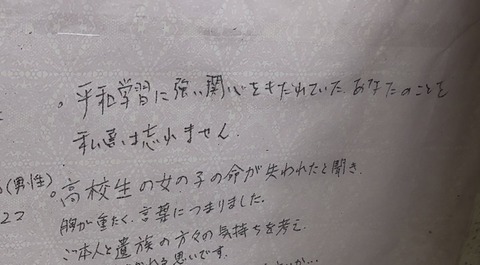 。平和学習に強い関心をきだれていた あなたのことを
私は忘れません.
(男性)
。高校生の女の子の命が失われたと聞き.
22
胸が重たく、言葉につまりました。
ご本人と遺族の方々の気持ちを考え.
思いです。